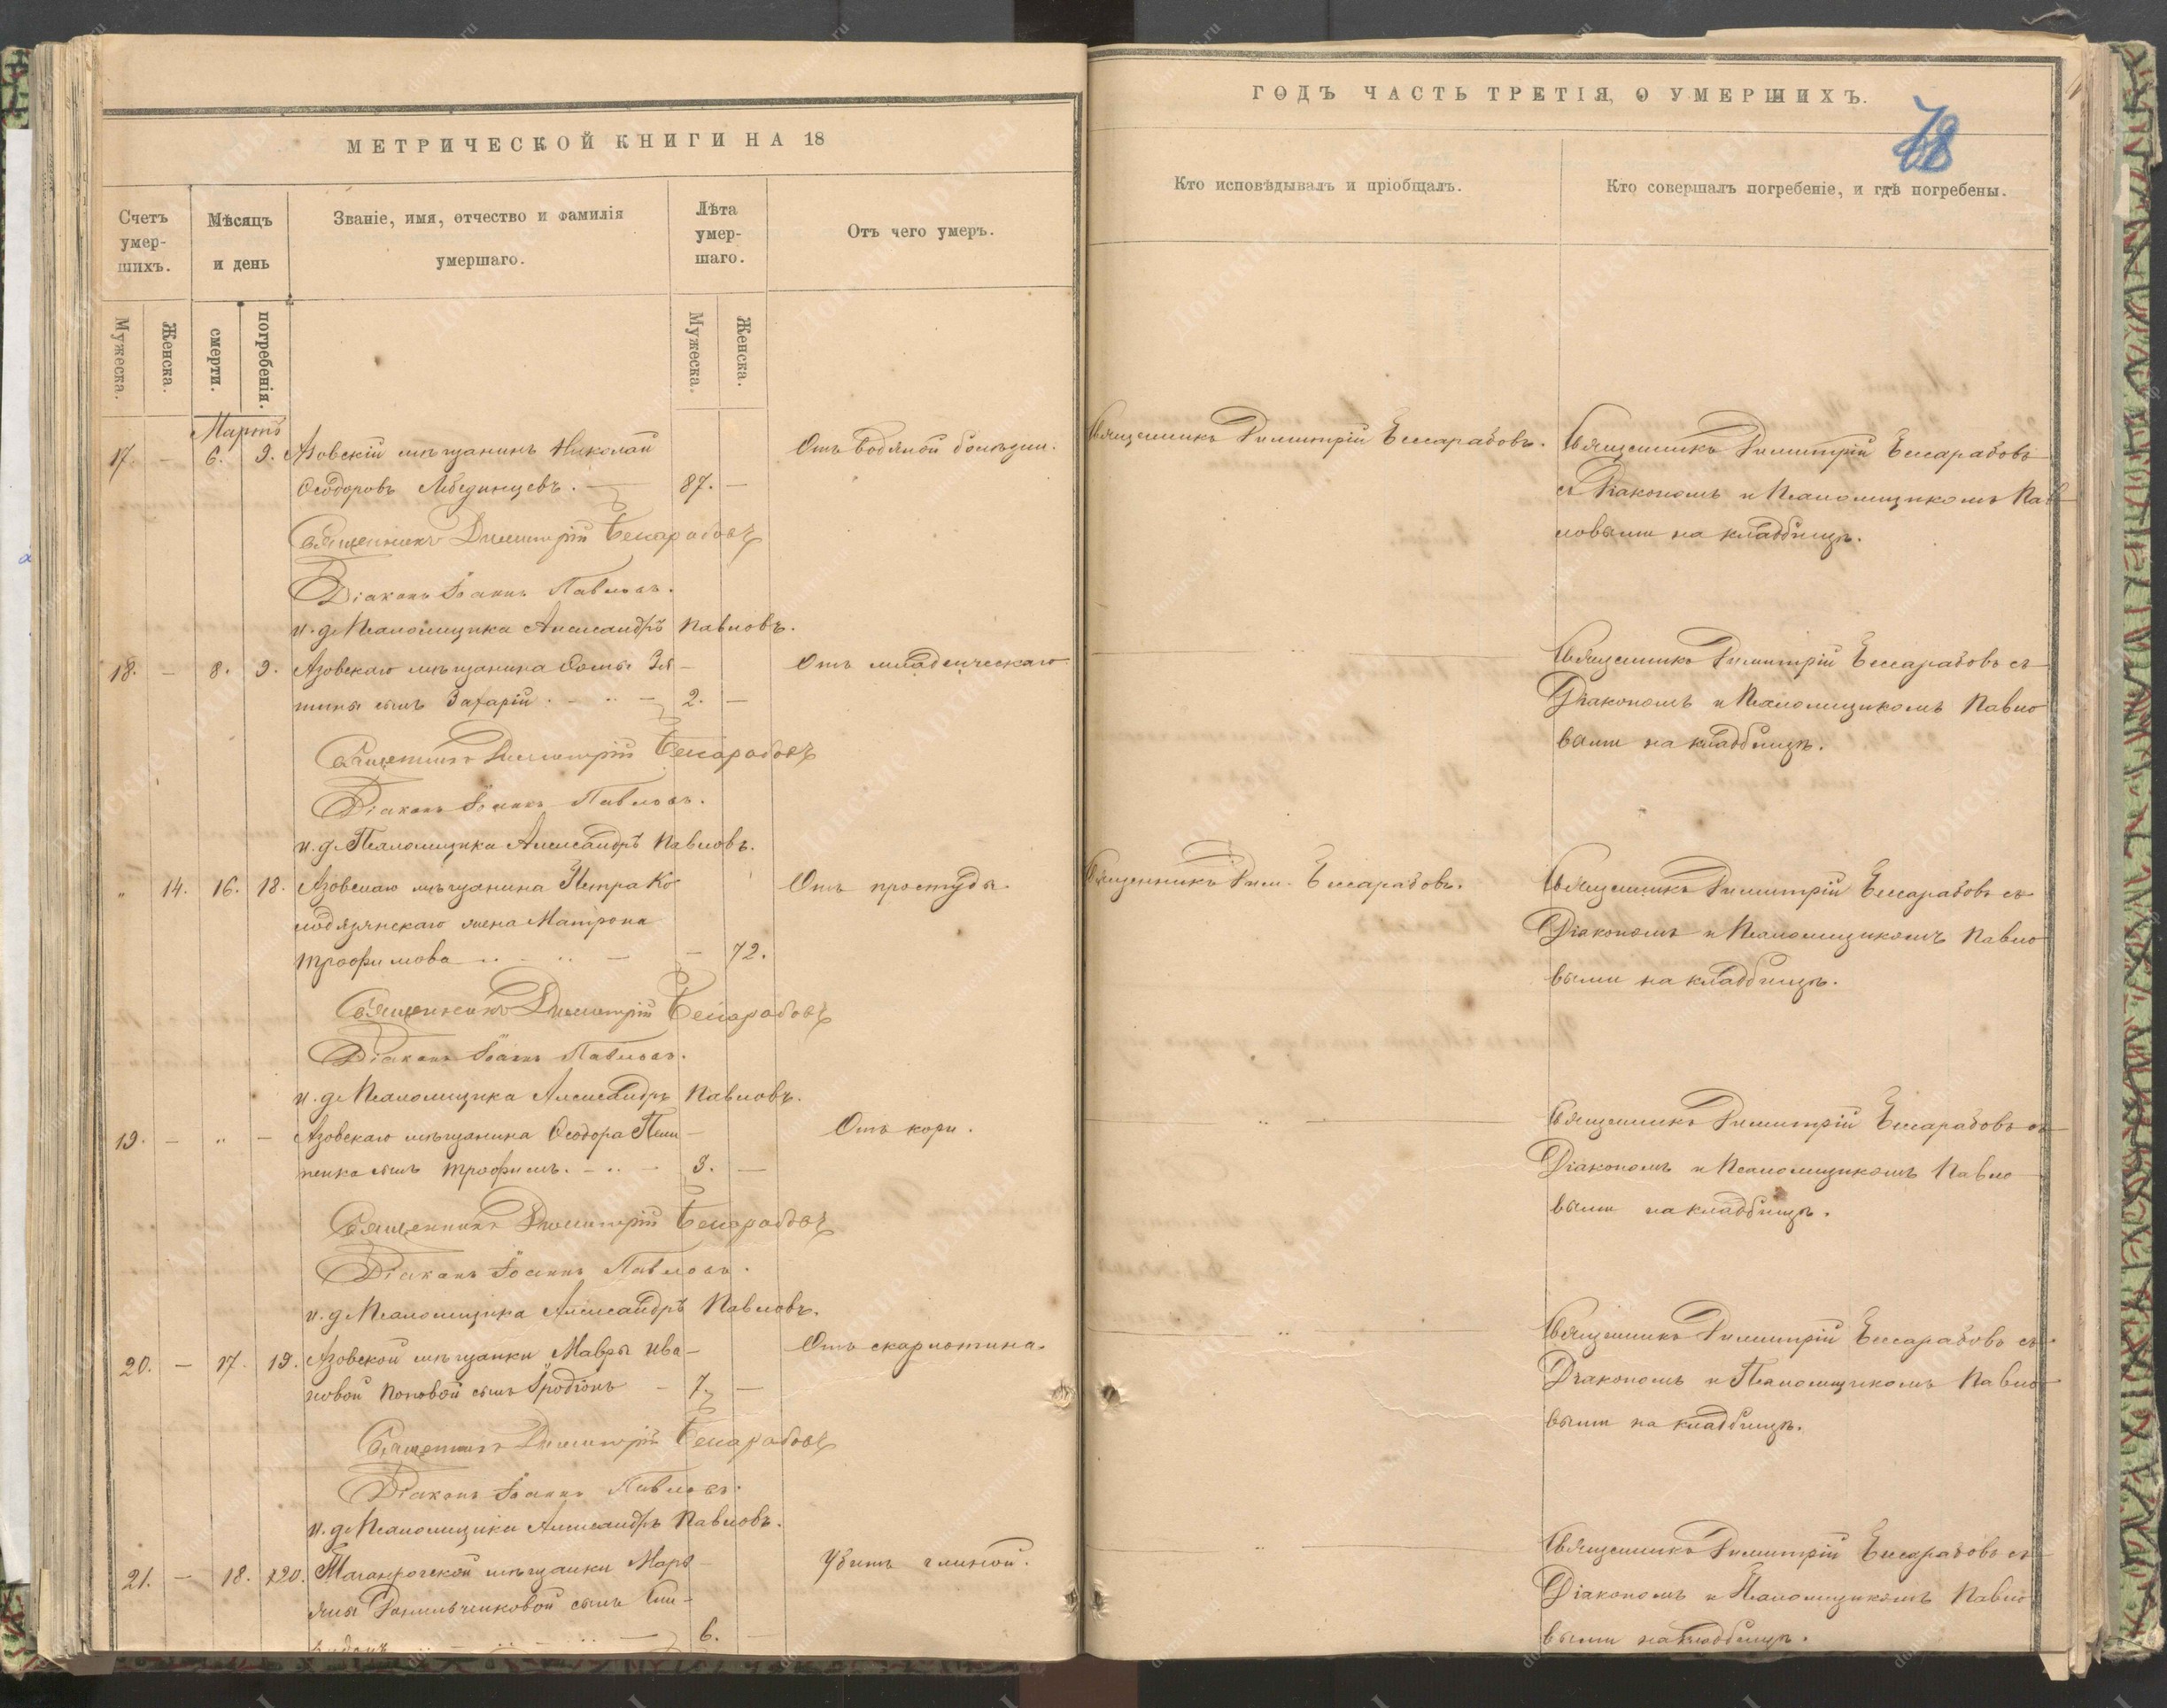 МЕТРИЧЕСКОЙ КНИГИ НА 18
Счетъ умер-шихъ.
Мѣсяцъ и день
Званіе, имя, отчество и фамилія умершаго.
Лѣта умер-шаго.
Отъ чего умеръ.
Мужеска. Женска. смерти. погребенія. Мужеска. Женска.
Мартъ
17. — 6. 9. Азовскій мѣщанинъ Николай Отъ водяной болѣзни.
Ѳеодоровъ Лебединцевъ. — 87. —
Священникъ Димитрій Бессарабовъ
Діаконъ Іоаннъ Павловъ.
и. д. Псаломщика Александръ Павловъ.
18. — 8. 9. Азовскаго мѣщанина Ѳомы Отъ младенческаго
сынъ Захарій. — 2. —
Священникъ Димитрій Бессарабовъ
Діаконъ Іоаннъ Павловъ.
и. д. Псаломщика Александръ Павловъ.
„ 14. 16. 18. Азовскаго мѣщанина Петра Ко- Отъ простуды.
лодязянскаго жена Матрона
Трофимова — — 72.
Священникъ Димитрій Бессарабовъ
Діаконъ Іоаннъ Павловъ.
и. д. Псаломщика Александръ Павловъ.
19. — „ — Азовскаго мѣщанина Ѳеодора Отъ кори.
сынъ Трофимъ. — 3. —
Священникъ Димитрій Бессарабовъ
Діаконъ Іоаннъ Павловъ.
и. д. Псаломщика Александръ Павловъ.
20. — 17. 19. Азовской мѣщанки Мавры Ива- Отъ скарлотина.
новой Поповой сынъ Іродіонъ — 7. —
Священникъ Димитрій Бессарабовъ
Діаконъ Іоаннъ Павловъ.
и. д. Псаломщика Александръ Павловъ.
21. — 18. 20. Таганрогской мѣщанки Марі- Убитъ глиной.
сынъ
6. —
ГОДЪ ЧАСТЬ ТРЕТІЯ, О УМЕРШИХЪ.
78
Кто исповѣдывалъ и пріобщалъ.
Кто совершалъ погребеніе, и гдѣ погребены.
Священникъ Димитрій Бессарабовъ. Священникъ Димитрій Бессарабовъ
съ Діакономъ и Псаломщикомъ Пав-
ловыми на кладбищѣ.
— „ — Священникъ Димитрій Бессарабовъ съ
Діакономъ и Псаломщикомъ Павло-
выми на кладбищѣ.
Священникъ Дим. Бессарабовъ. Священникъ Димитрій Бессарабовъ съ
Діакономъ и Псаломщикомъ Павло-
выми на кладбищѣ.
— „ — Священникъ Димитрій Бессарабовъ съ
Діакономъ и Псаломщикомъ Павло-
выми на кладбищѣ.
— „ — Священникъ Димитрій Бессарабовъ съ
Діакономъ и Псаломщикомъ Павло-
выми на кладбищѣ.
— „ — Священникъ Димитрій Бессарабовъ съ
Діакономъ и Псаломщикомъ Павло-
выми на кладбищѣ.